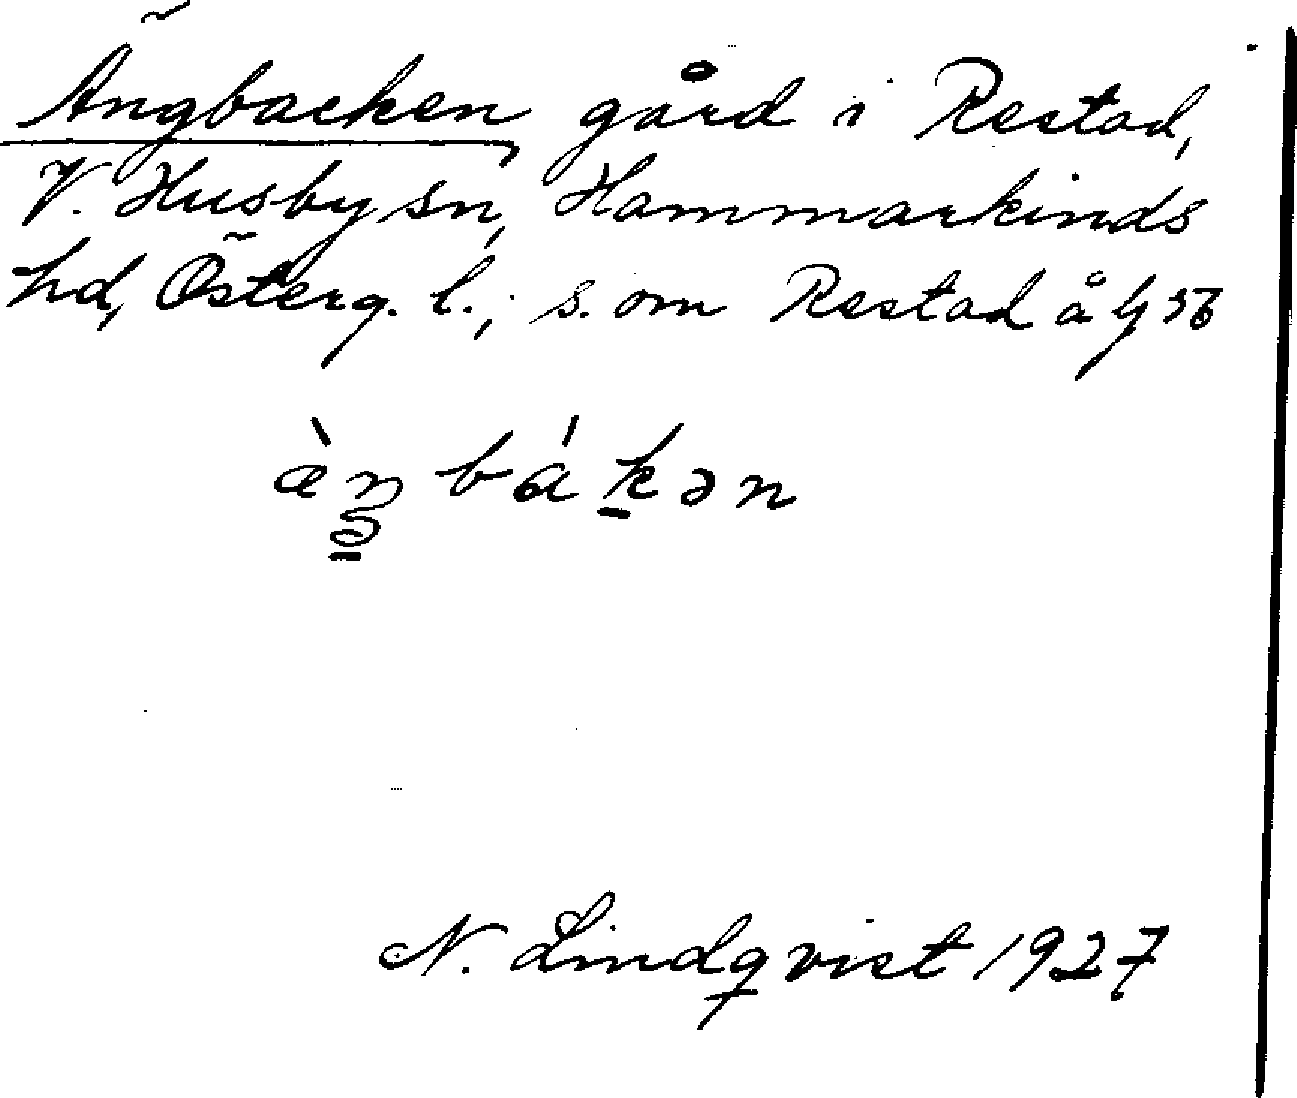 Ängbacken, gård i Restad,
V. Husby sn, Hammarkinds
hd, Österg. l.; s. om Restad å Gj 56
æ̀ŋ bákən
N. Lindqvist 1927